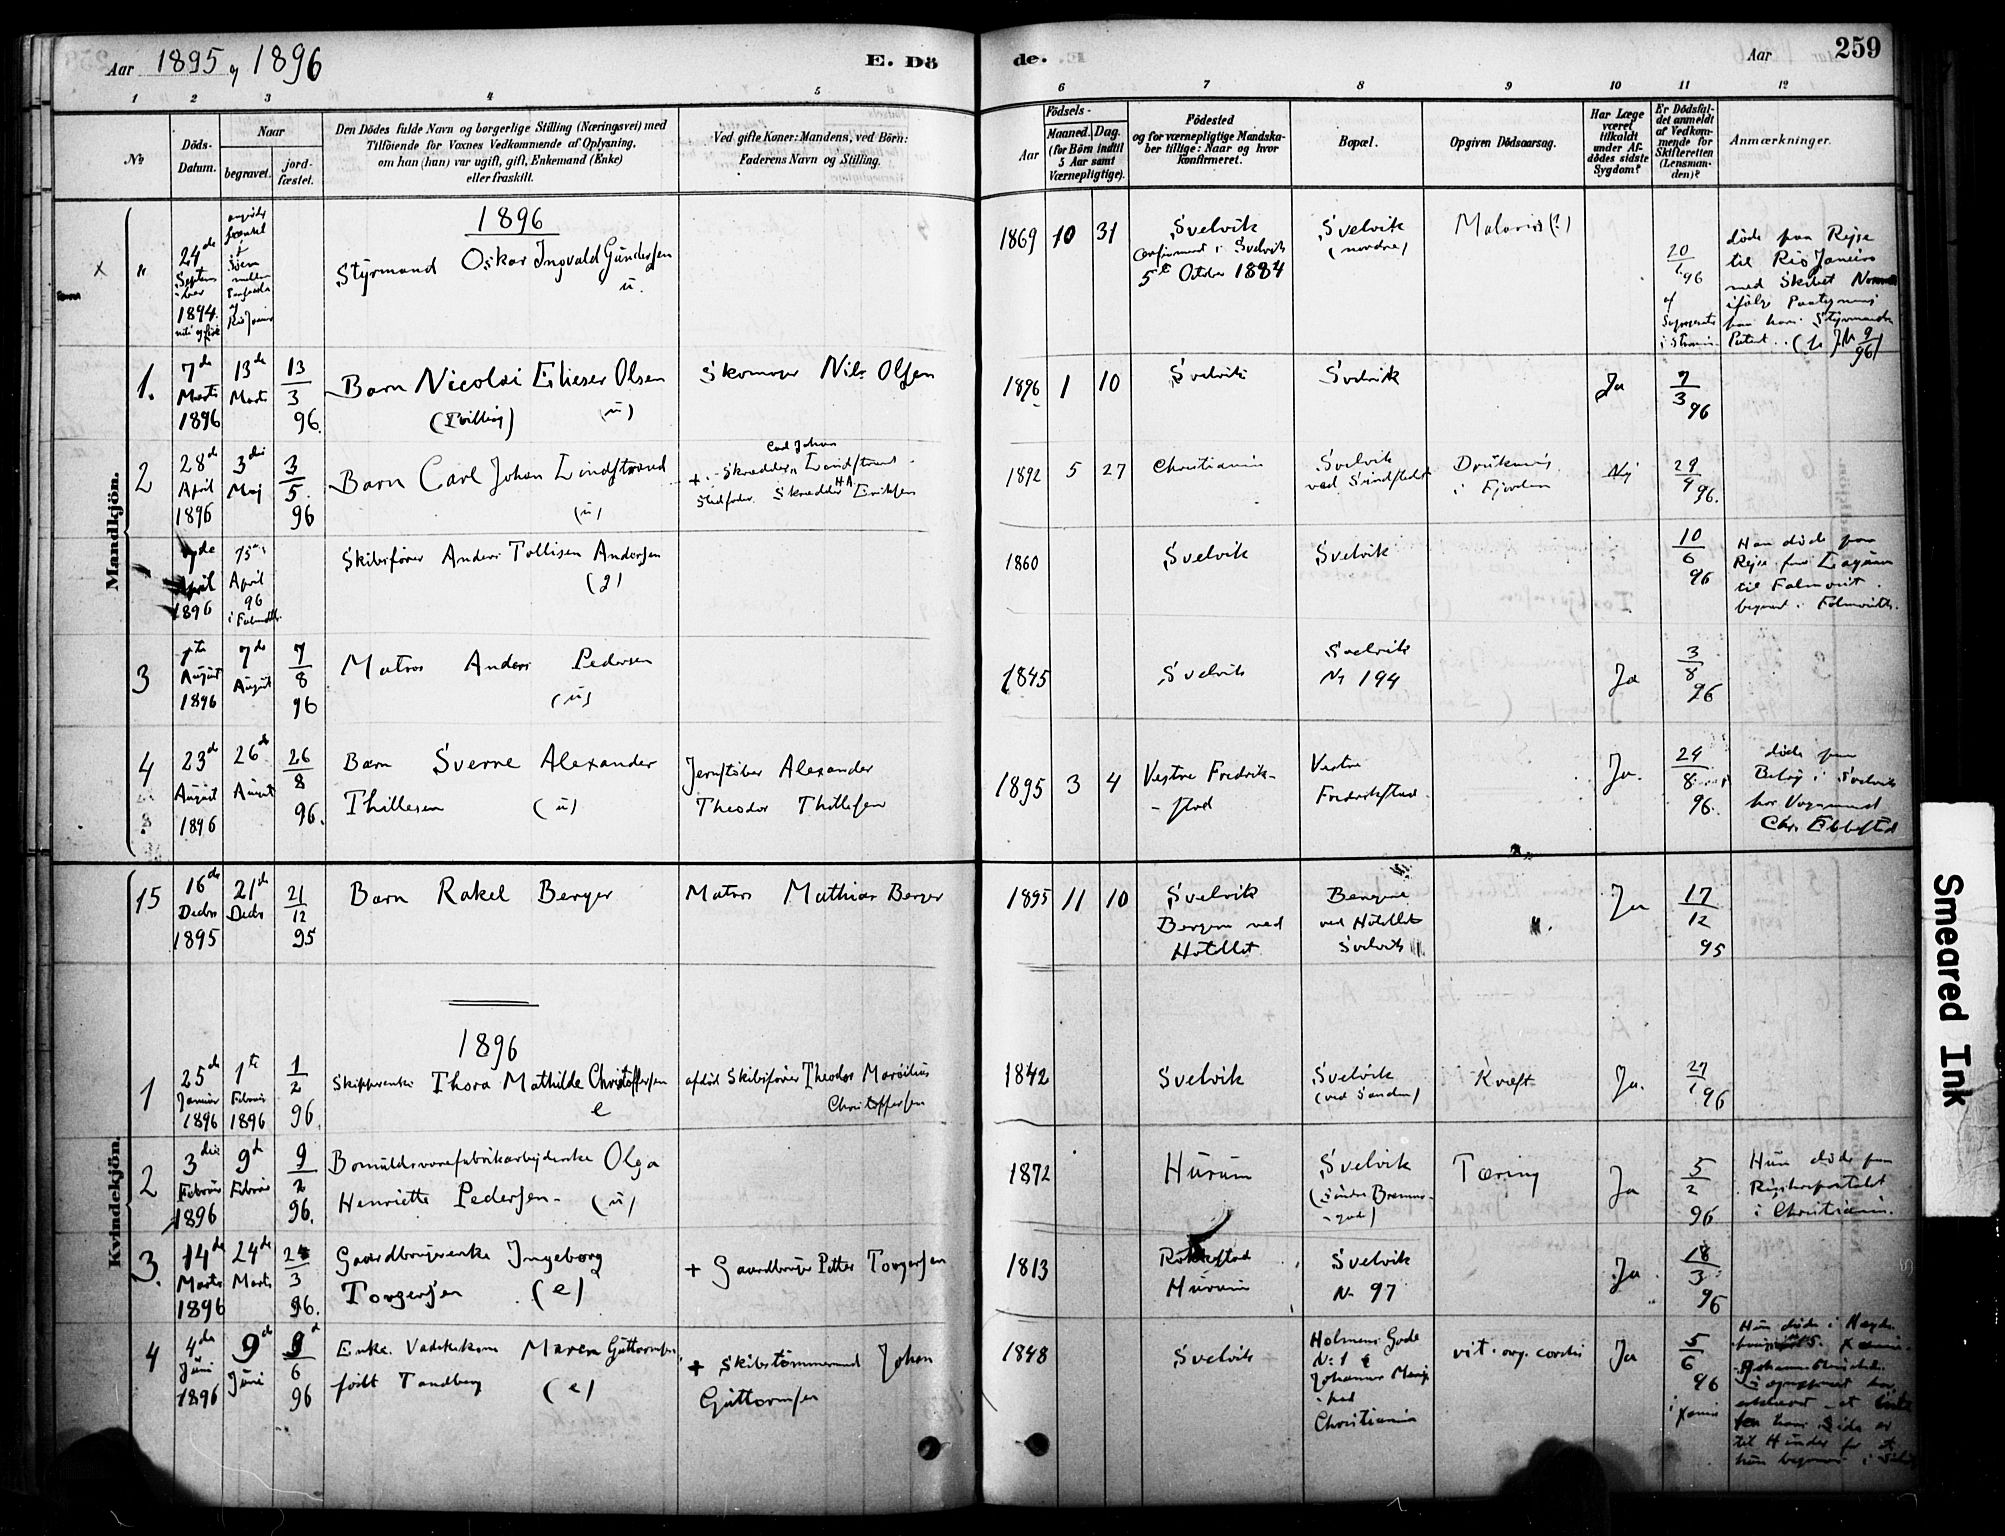 Aar 1895 og 1896
E. Dö
de.
Aar
259
1 2 3 4 5 6 7 8 9 10 11 12
No
Döds-
Datum.
Naar
begravet.
jord-
fæstet.
Den Dödes fulde Navn og borgerlige Stilling (Næringsvei) med
Tilföiende for Voxnes Vedkommende af Oplysning,
om han (hun) var ugift, gift, Enkemand (Enke)
eller fraskilt.
Ved gifte Koner: Mandens, ved Börn:
Faderens Navn og Stilling.
Födsels-
Aar
Maaned. Dag.
(for Börn indtil
5 Aar samt
Værnepligtige).
Födested
og for værnepligtige Mandska-
ber tillige: Naar og hvor
Konfirmeret.
Bopæl.
Opgiven Dödsaarsag.
Har Læge
været
tilkaldt
under Af-
dödes sidste
Sygdom?
Er Dödsfal-
det anmeldt
af Vedkom-
mende for
Skifteretten
(Lensman-
den)?
Anmærkninger.
Mandkjön.
1896
x
"
24de
Septem-
ber
1894.
Styrmand Oskar Ingvald Gundersen
u.
1869 10 31
Svelvik
Confirmert i Svelvik
5te October 1884
Svelvik
(nordre)
Malaria (?)
20
1 96
døde paa Rejse
til Rio Janeiro
med Skibet
ifølge
1.
7de
Marts
1896
13de
Marts
13
3
96.
Barn Nicolai Elieser Olsen
(Tvilling) (u)
Skomager Nils Olsen
1896 1 10
Svelvik
Svelvik
Ja
7
3 96
2
28de
April
1896
3die
Maj
3
5.
96
Barn Carl Johan Lindstrand
(u)
Carl Johan
+ Skrædder Lindstrand
Stedfader Skrædder HA Eriksen
1892 5 27
Christiania
Svelvik
Druknede
i Fjorden
Nej
29
4 96.
7de
April
1896
15de
April
96
Skibsfører Anders Tollisen Andersen
(g)
1860
Svelvik
Svelvik
10
6
96
Han døde paa
Rejse fra Laguna
til Falmouth
begravet i Falmouth.
3
1te
August
1896
7de
August
7
8
96
Matros Anders Pedersen
(u)
1845
Svelvik
Svelvik
Nr 194
Ja
3
8
96
4
23de
August
1896
26de
August
26
8
96.
Barn Sverre Alexander
Thillesen (u)
Jernstøber Alexander
Theodor Thillesen
1895 3 4
Vestre Fredrik-
-stad
Vestre
Fredrikstad
Ja.
24
8
96.
døde paa
Besøg i Svelvik
hos Vognmand
Chr. Ebbestad
Kvindekjön.
15
16de
Decbr
1895
21de
Decbr
21
12
95
Barn Rakel Berger
Matros Mathias Berger
1895 11 10
Svelvik
Bergerne ved
Hotellet
Bergene
ved Hotellet
Svelvik
Ja
17
12
95
1896
1
25de
Januar
1896
1te
Februar
1896
1
2
96.
Skipperenke Thora Mathilde Christoffersen
e
afdød Skibsfører Theodor Marsilius
Christoffersen
1842
Svelvik
Svelvik
(ved Sanden)
Kræft
Ja.
27
1 96
2
3die
Februar
1896
9de
Februar
9
2
96.
Bomuldsvarefabrikarbejderske Olga
Henriette Pedersen (u)
1872
Hurum
Svelvik
Tæring
Ja
5
2
96
Hun døde paa
Rigshospitalet
i Christiania.
3.
14de
Marts
1896
24de
Marts
24
3
96.
Gaardbrugerenke Ingeborg
Torgersen (e)
+ Gaardbruger Petter Torgersen
1813
Rokkestad
Hurum
Svelvik
Nr 97
Ja
18
3
96
4
4de
Juni
1896
9de
Juni
9
6
96
Enke Vadskekone Maren Guttormsen
født Tandberg (e)
+ Skibstømmermand Johan
Guttormsen
1848
Svelvik
Holmens Gade
Nr 1
Christiania
vit. org. cordis
Ja
5
6
96
Hun døde i
Smeared Ink